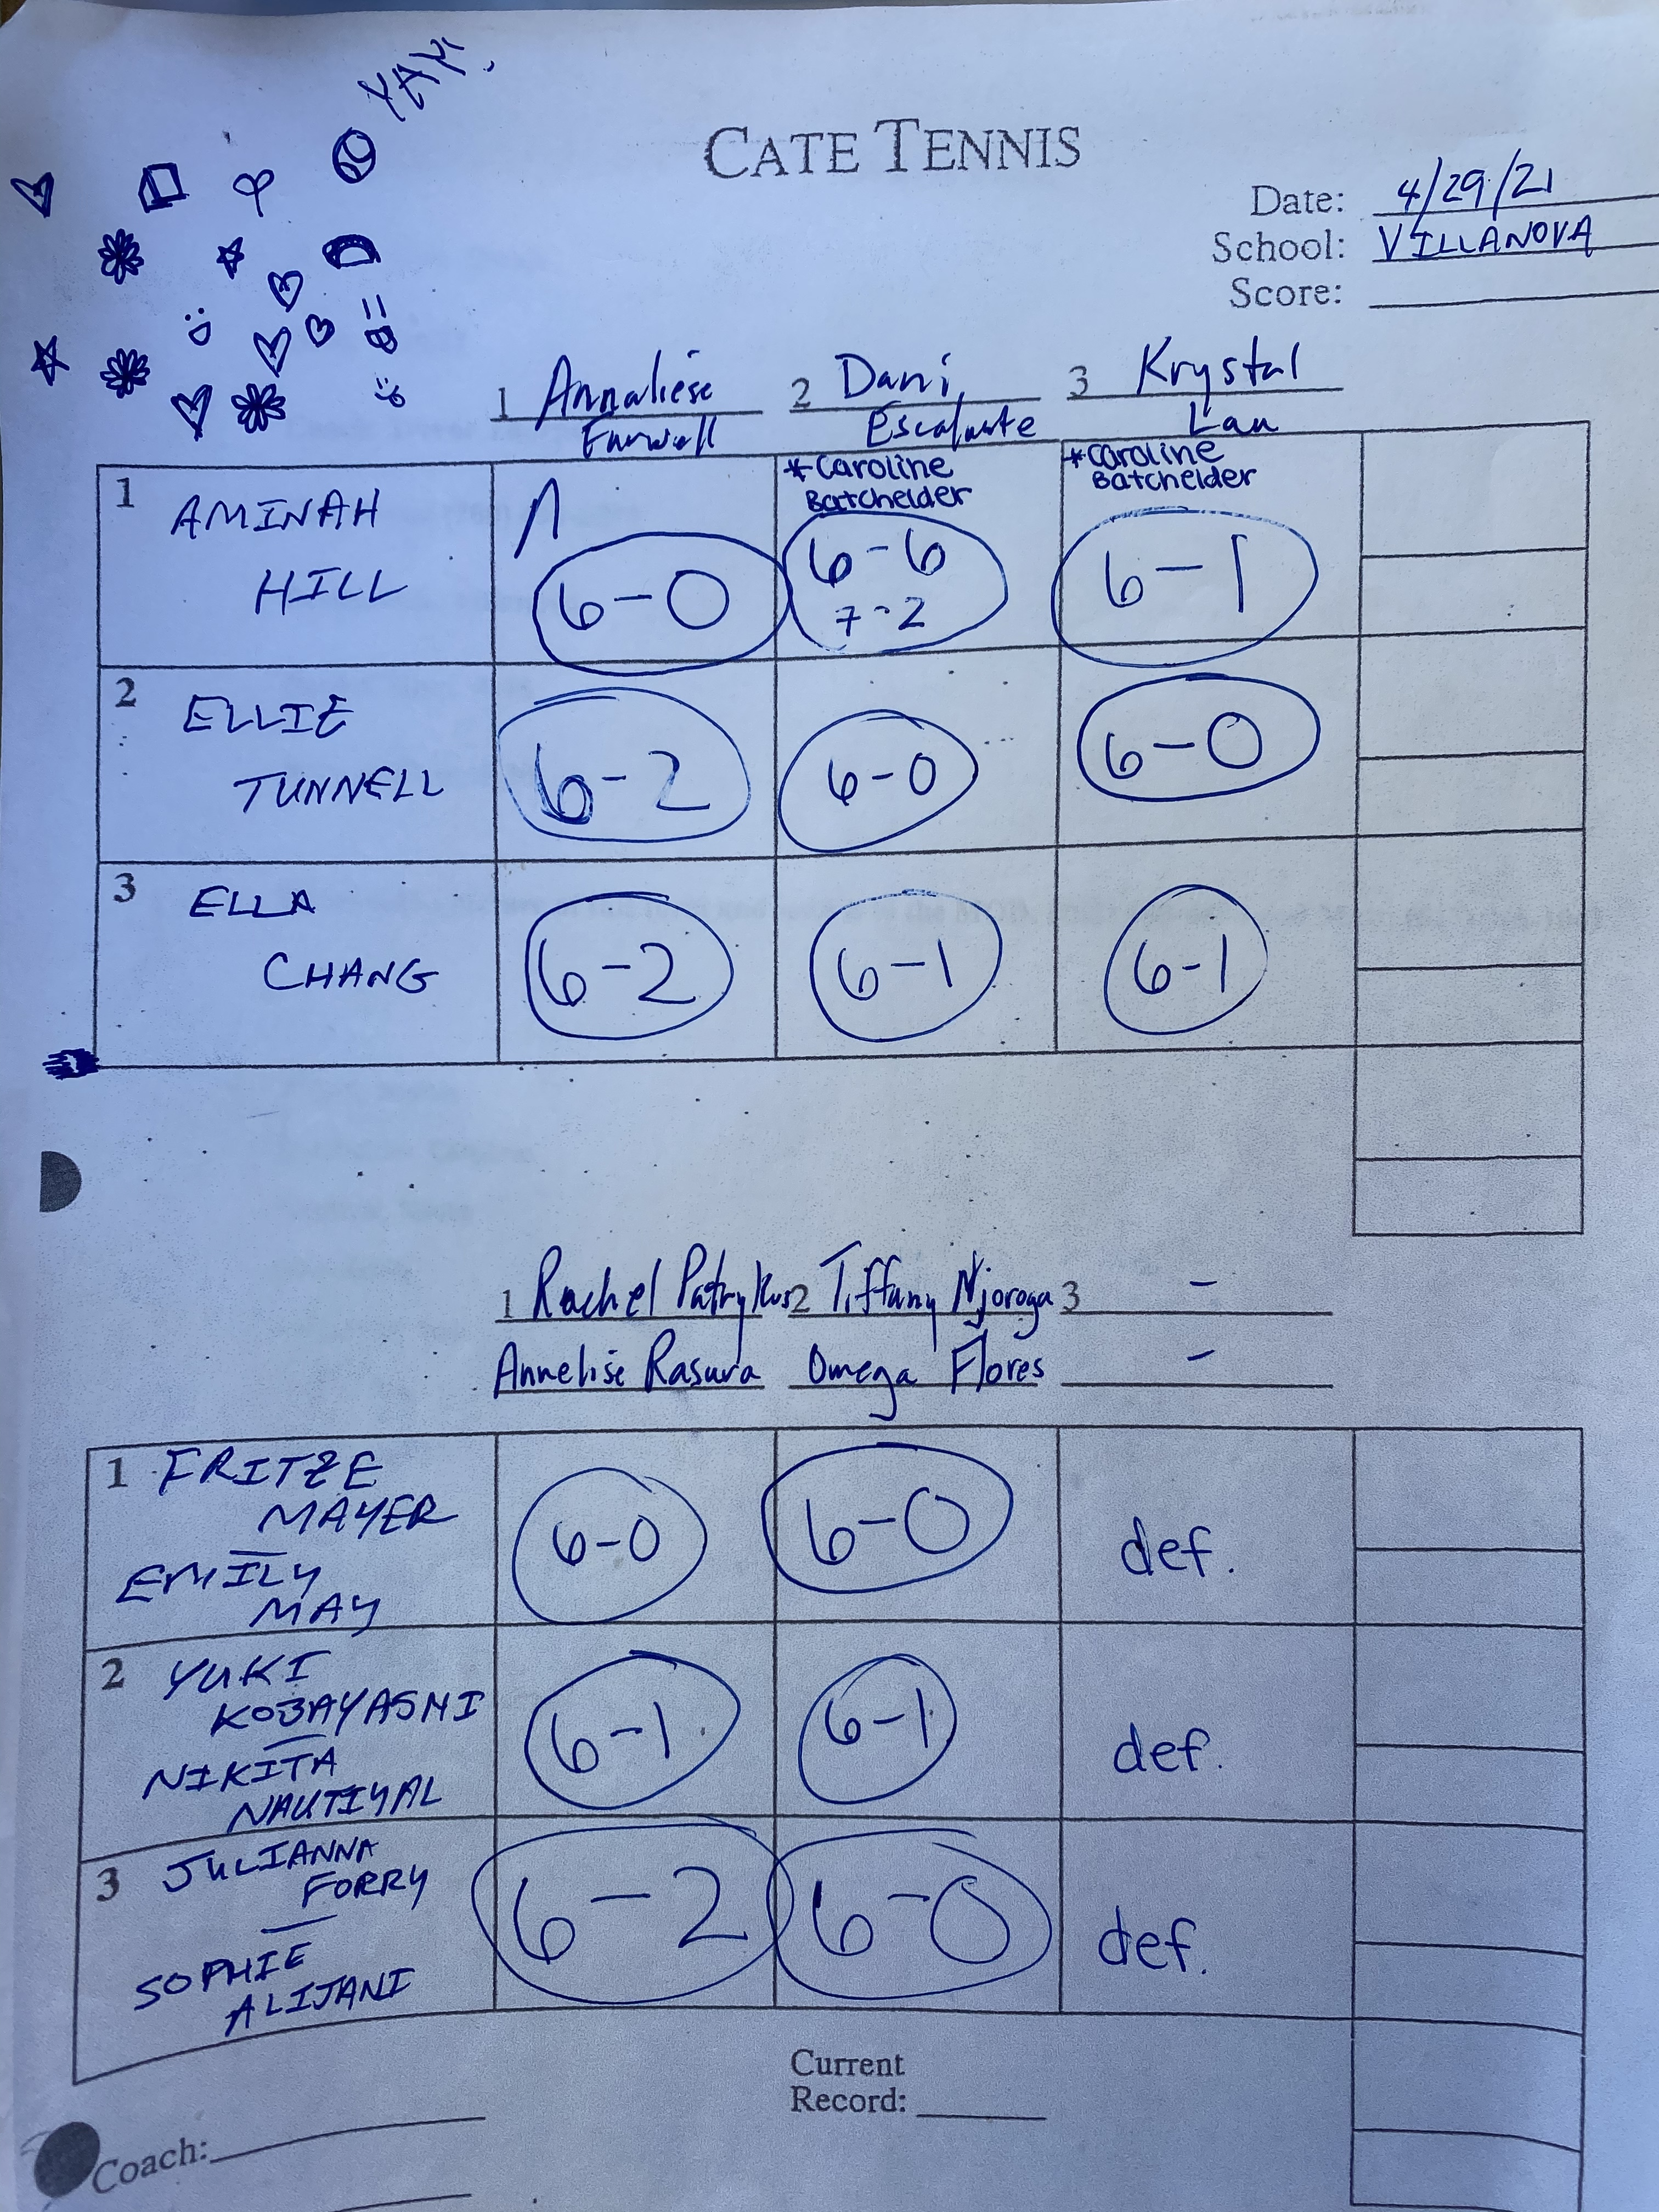 YAY!
CATE TENNIS
Date: 4/29/21
School: VILLANOVA
Score:
1 Annaliese 2 Dani 3 Krystal
Escalante Lau
1 AMINAH
HILL
6-0
*Caroline
Batchelder
6-6
7-2
*Caroline
Batchelder
6-1
2 ELLIE
TUNNELL
6-2 6-0 6-0
3 ELLA
CHANG
6-2 6-1 6-1
1 Rachel Patrykus 2 Tiffany Njoroga 3 -
Annelise Rasura Omega Flores -
1 FRITZE
MAYER
EMILY
MAY
6-0 6-0 def.
2 YUKI
KOBAYASHI
NIKITA
NAUTIYAL
6-1 6-1 def.
3 JULIANNA
FORRY
SOPHIE
ALIJANI
6-2 6-0 def.
Current
Record:
Coach: